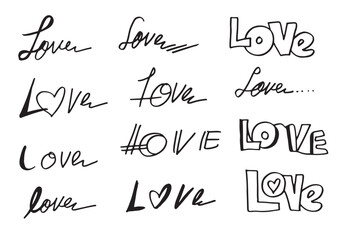 Lover
Lover
LOVe
Lover
Lover
Lover....
Lover
LOVE
LOVE
lover
Lover
LOVe